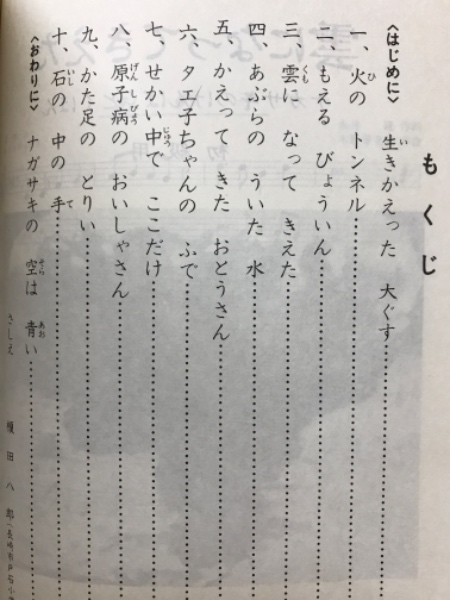 もくじ
〈はじめに〉 生きかえった 大ぐす
一、火の トンネル
二、もえる びょういん
三、雲に なって きえた
四、あぶらの ういた 水
五、かえって きた おとうさん
六、タエ子ちゃんの ふで
七、せかい中で ここだけ
八、原子病の おいしゃさん
九、かた足の とりい
十、石の 中の 手
〈おわりに〉 ナガサキの 空は 青い
さしえ 榎田八郎